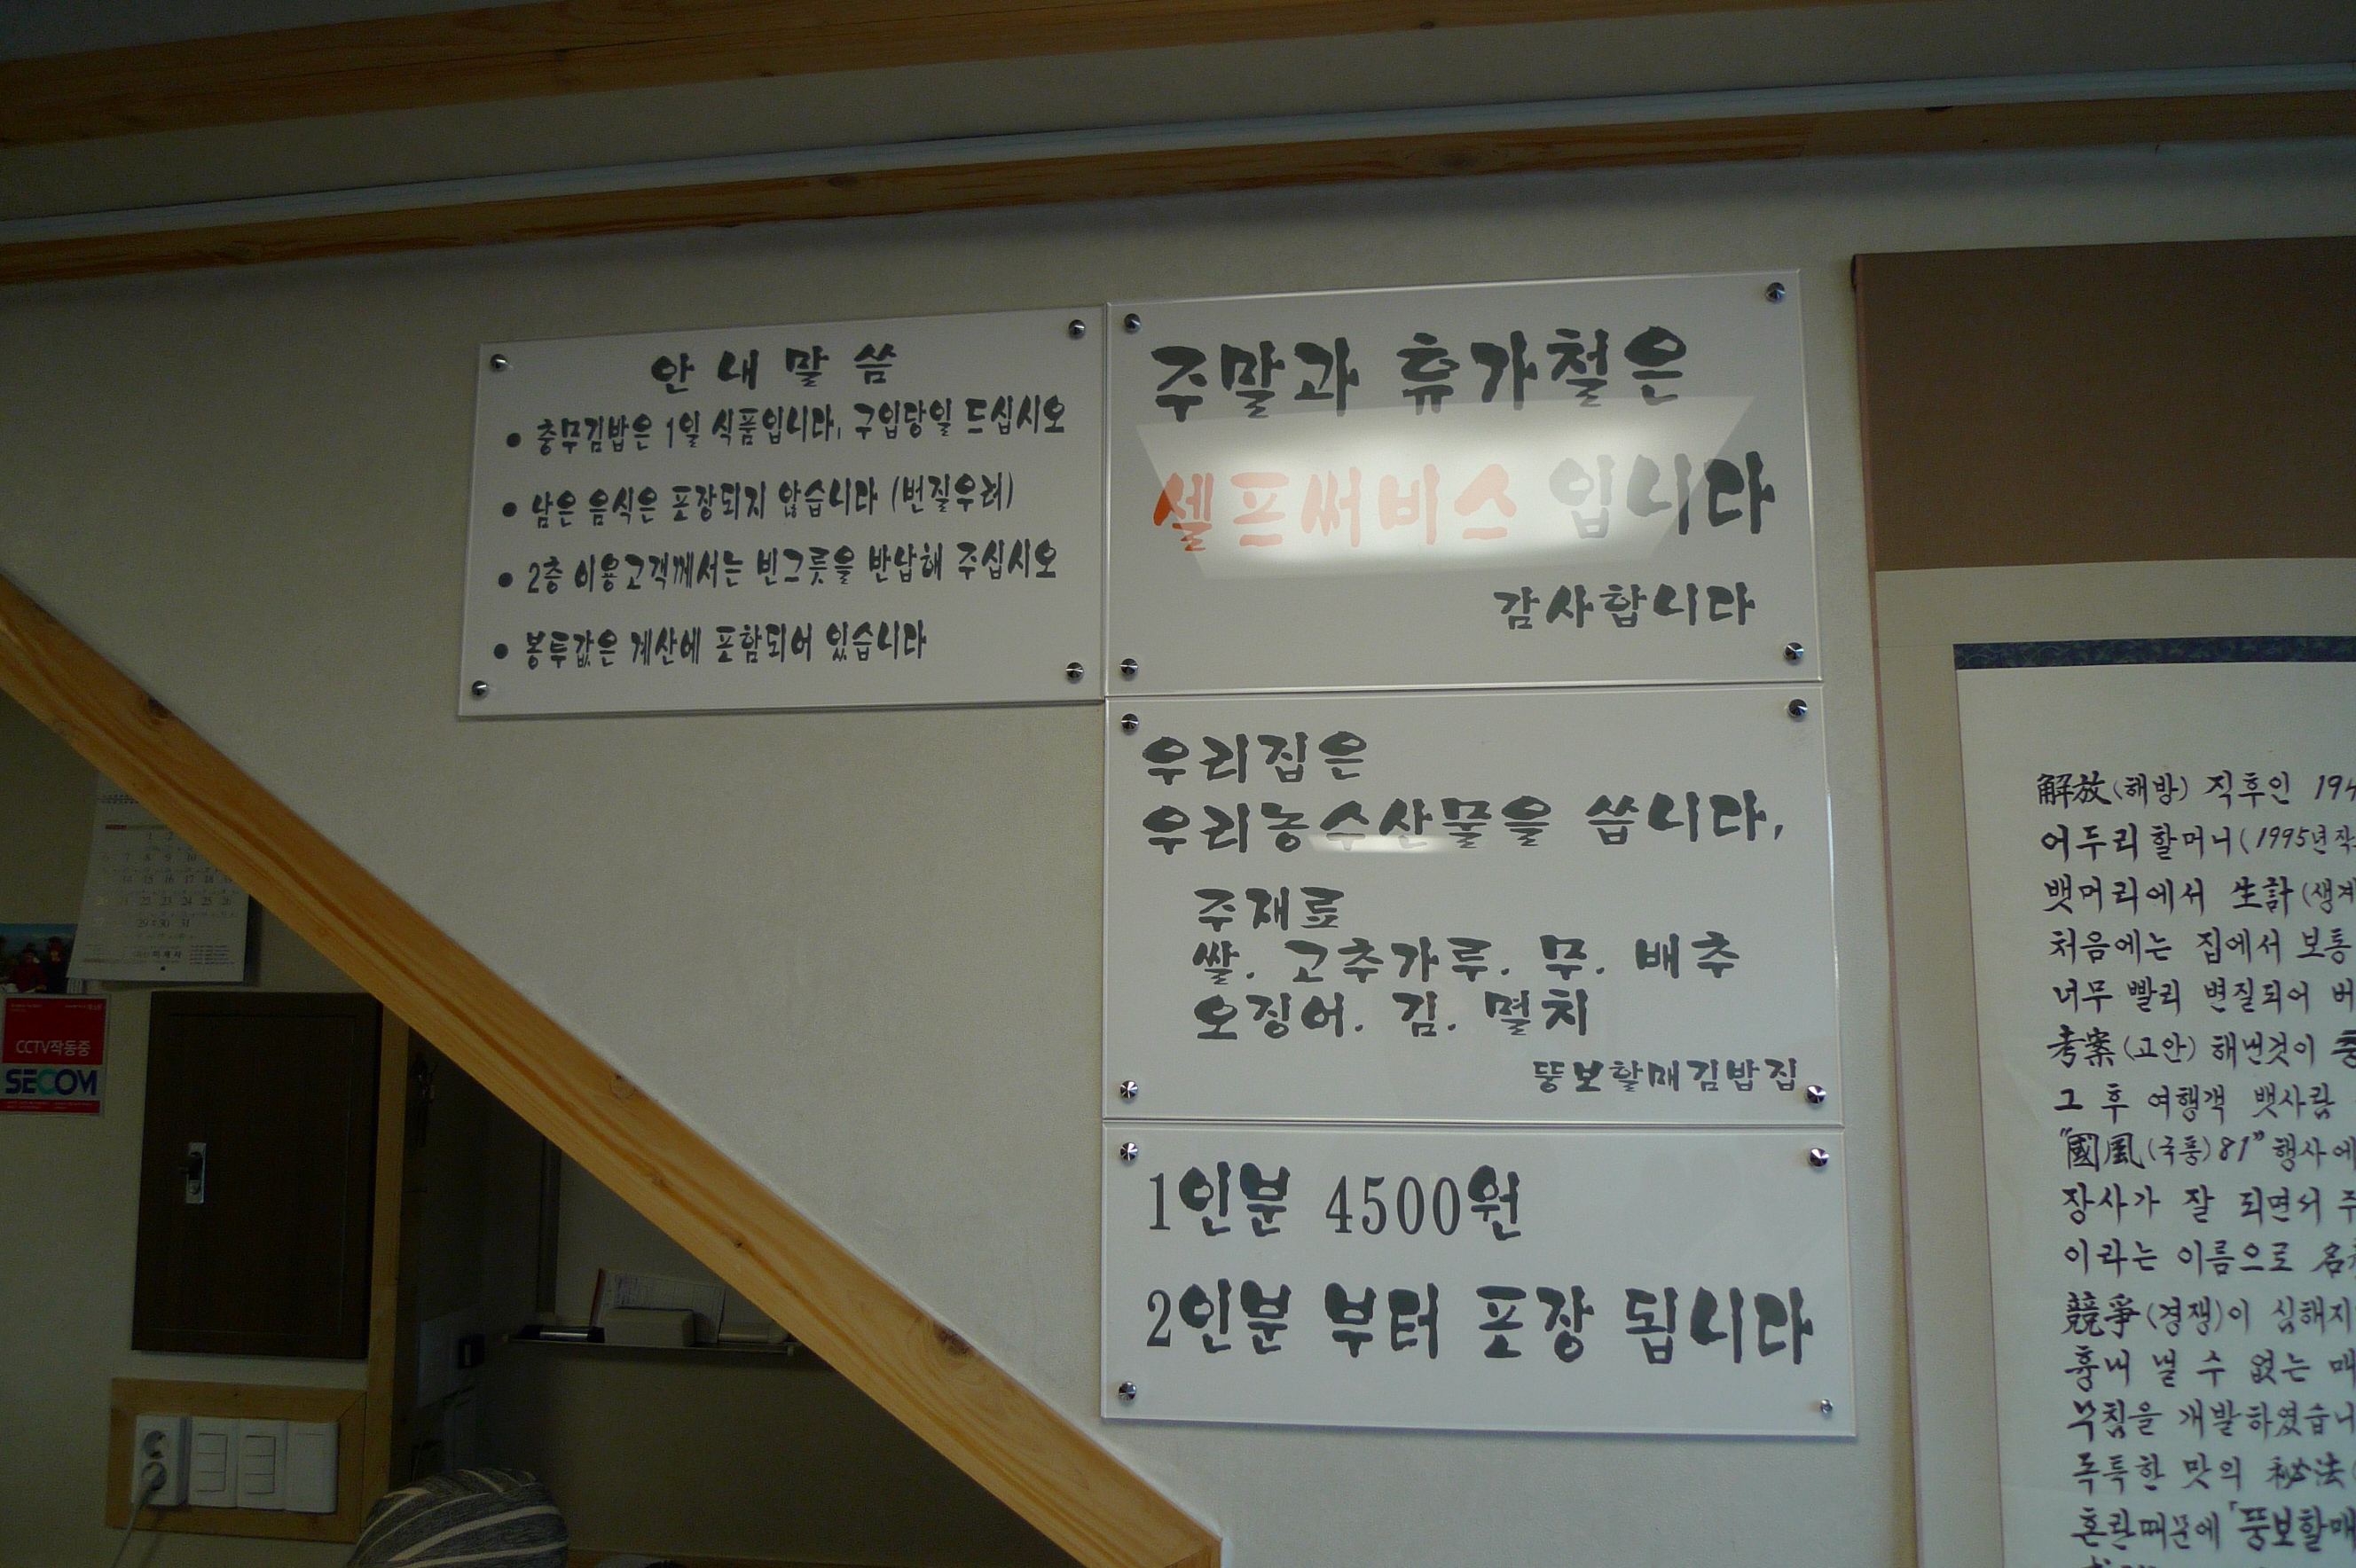 안내말씀
● 충무김밥은 1일 식품입니다, 구입당일 드십시오
● 남은 음식은 포장되지 않습니다 (변질우려)
● 2층 이용고객께서는 빈그릇을 반납해 주십시오
● 봉투값은 계산에 포함되어 있습니다
주말과 휴가철은
셀프써비스 입니다
감사합니다
우리집은
우리농수산물을 씁니다,
주재료
쌀. 고추가루. 무. 배추
오징어. 김. 멸치
뚱보할매김밥집
1인분 4500원
2인분 부터 포장 됩니다
CCTV작동중
SECOM
解放(해방) 직후인 194
어두리할머니(1995년작
뱃머리에서 生計(생계
처음에는 집에서 보통
너무 빨리 변질되어 버
考案(고안) 해낸것이 충
그 후 여행객 뱃사람
"國風(국풍)81" 행사에
장사가 잘 되면서 주
이라는 이름으로 名
競爭(경쟁)이 심해지
흉내 낼 수 없는 매
무침을 개발하였습니
독특한 맛의 秘法
혼란때문에 「뚱보할매